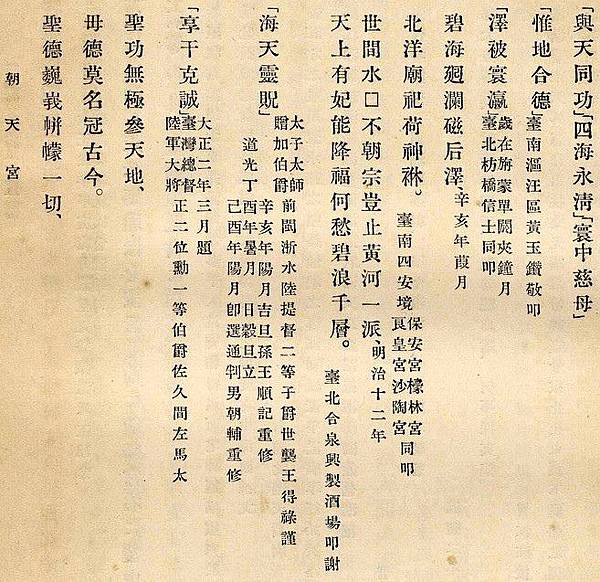 「與天同功」「四海永淸」「寰中慈母」
「惟地合德
臺南漚汪區黃玉鑽敬叩
「澤被寰瀛
歲在旃蒙單閼夾鐘月
臺北枋橋信士同叩
碧海廻瀾磁后澤、辛亥年葭月
北洋廟祀荷神庥。
臺南四安境
保安宮檺林宮
良皇宮沙陶宮
同叩
世間水□不朝宗豈止黃河一派、明治十二年
天上有妃能降福何愁碧浪千層。
臺北合泉興製酒場叩謝
「海天靈貺」
太子太師
贈加伯爵
前閩浙水陸提督二等子爵世襲王得祿謹
道光丁酉年暑月 日穀旦立
辛亥年陽月吉旦孫王順記重修
己酉年陽月卽選通判男朝輔重修
「享于克誠
大正二年三月題
臺灣總督
陸軍大將
正二位勳一等伯爵佐久間左馬太
聖功無極參天地、
母德莫名冠古今。
聖德巍峩帡幪一切、
朝天宮